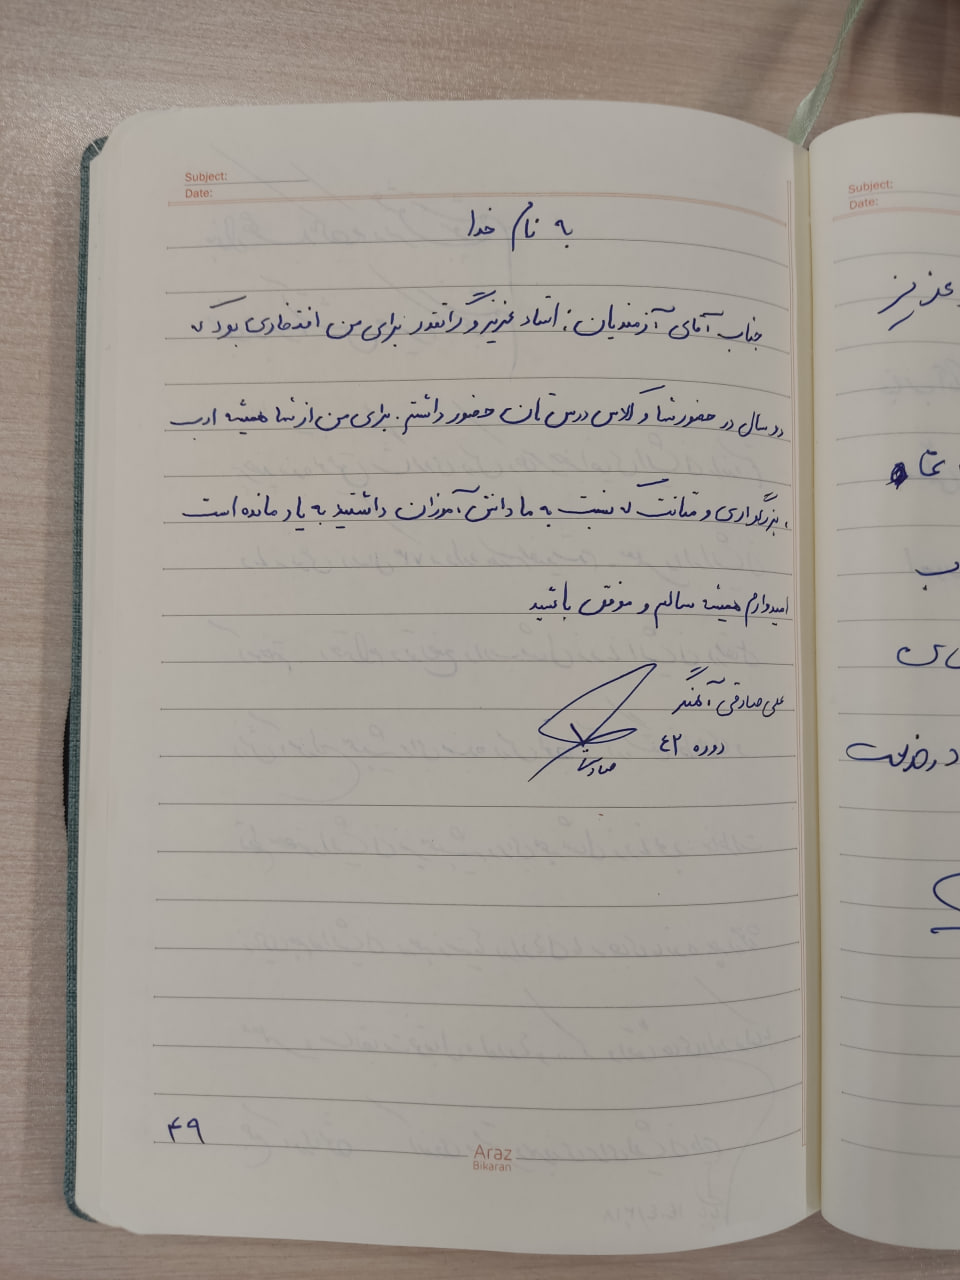 Subject:
Date:
به نام خدا
جناب آقای آزمندیان؛ استاد عزیز و گرانقدر برای من افتخاری بود که
دو سال در حضور شما و کلاس درس تان حضور داشتم. برای من از شما همیشه ادب
، بزرگواری و متانت که نسبت به ما دانش آموزان داشتید به یاد مانده است
امیدوارم همیشه سالم و موفق باشید
علی صادقی
دوره ۴۲
۴۹
Araz
Bikaran
Subject:
Date:
عزیز